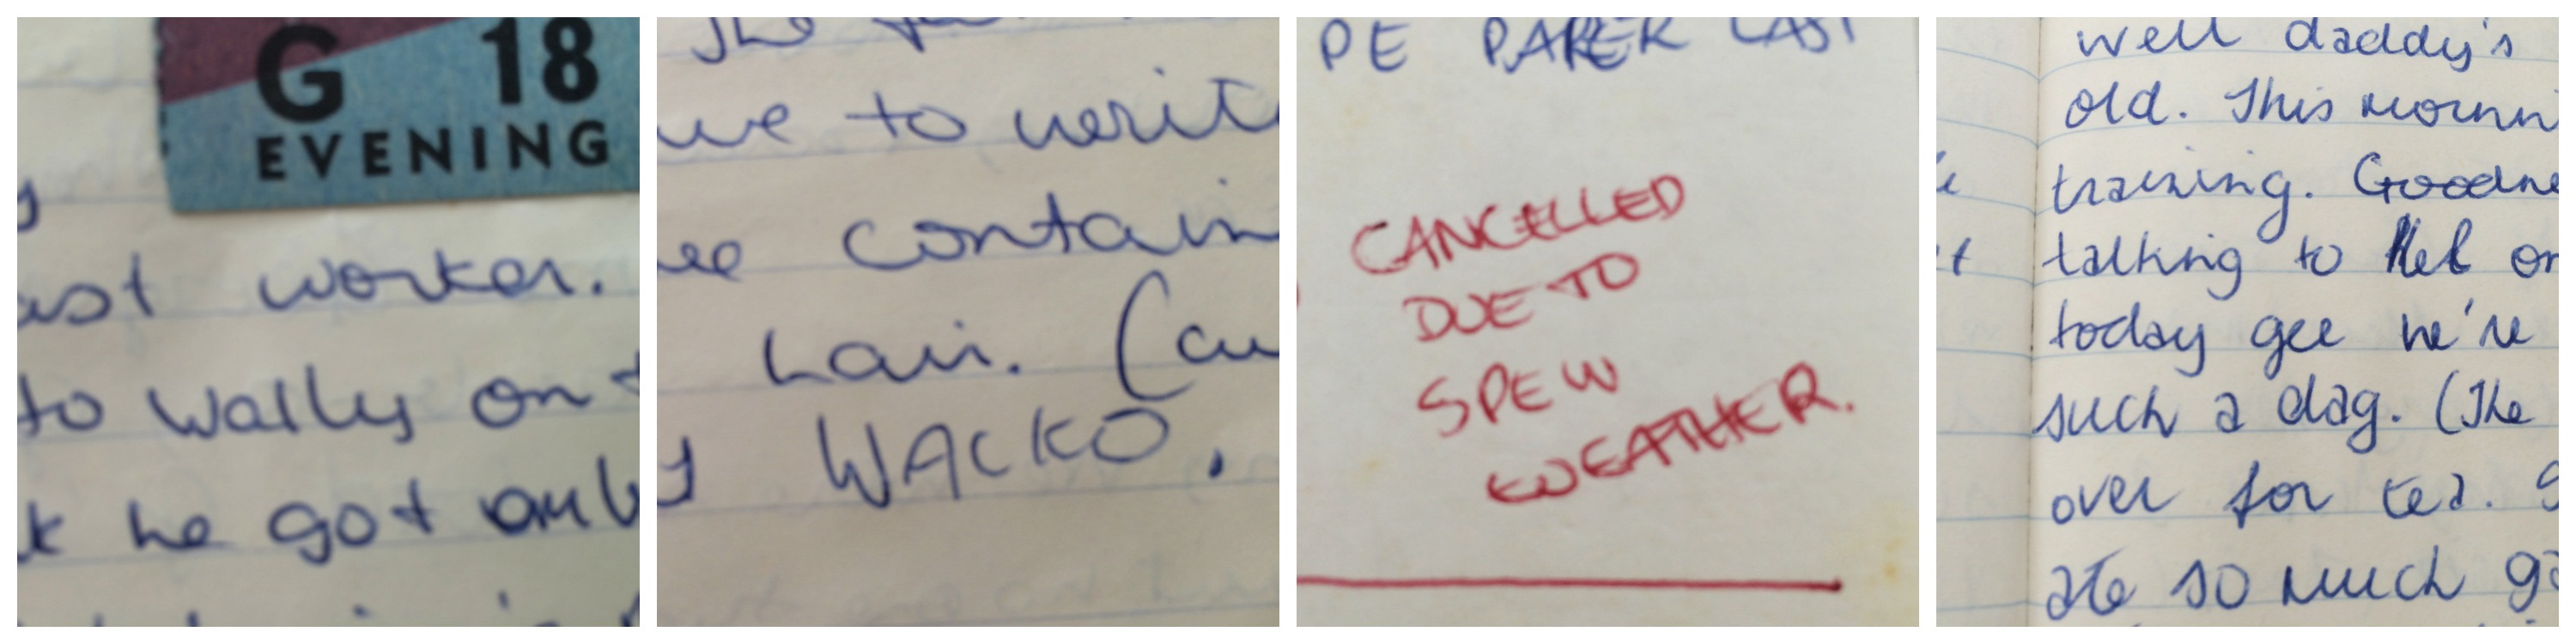 G 18
EVENING
y
ast worker.
to Wally on t
k he got
The
ve to writ
ee contain
hair. (cu
y WACKO.
PE PAPER LAST
CANCELLED
DUE TO
SPEW
WEATHER.
well daddy's
old. This mornin
training. Goodne
talking to Mel on
today gee we're
such a dag. (The
over for tea. S
ate so much go